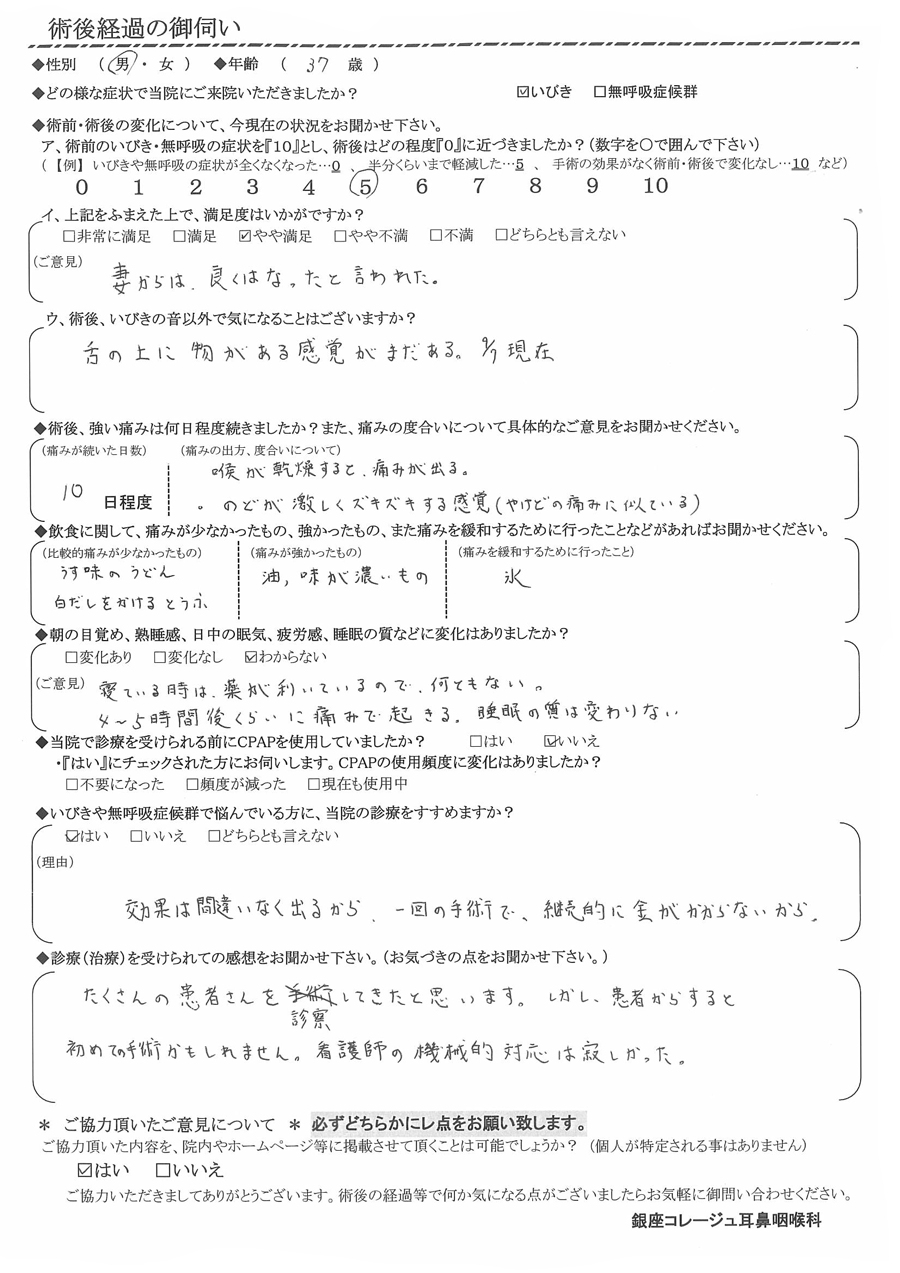 術後経過の御伺い
◆性別 （ 男 ・ 女 ） ◆年齢 （ 37 歳 ）
◆どの様な症状で当院にご来院いただきましたか？ ☑いびき □無呼吸症候群
◆術前・術後の変化について、今現在の状況をお聞かせ下さい。
ア、術前のいびき・無呼吸の症状を『10』とし、術後はどの程度『0』に近づきましたか？（数字を○で囲んで下さい）
（【例】 いびきや無呼吸の症状が全くなくなった…0 、 半分くらいまで軽減した…5 、 手術の効果がなく術前・術後で変化なし…10 など）
0 1 2 3 4 5 6 7 8 9 10
イ、上記をふまえた上で、満足度はいかがですか？
□非常に満足 □満足 ☑やや満足 □やや不満 □不満 □どちらとも言えない
（ご意見）
妻からは、良くはなったと言われた。
ウ、術後、いびきの音以外で気になることはございますか？
舌の上に物がある感覚がまだある。9/7現在
◆術後、強い痛みは何日程度続きましたか？また、痛みの度合いについて具体的なご意見をお聞かせください。
（痛みが続いた日数） （痛みの出方、度合いについて）
喉が乾燥すると、痛みが出る。
10 日程度 。のどが激しくズキズキする感覚(やけどの痛みに似ている)
◆飲食に関して、痛みが少なかったもの、強かったもの、また痛みを緩和するために行ったことなどがあればお聞かせください。
（比較的痛みが少なかったもの） （痛みが強かったもの） （痛みを緩和するために行ったこと）
うす味のうどん 油，味が濃いもの 氷
白だしをかけるとうふ
◆朝の目覚め、熟睡感、日中の眠気、疲労感、睡眠の質などに変化はありましたか？
□変化あり □変化なし ☑わからない
（ご意見） 寝ている時は、薬が利いているので、何ともない。
4～5時間後くらいに痛みで起きる。睡眠の質は変わりない
◆当院で診療を受けられる前にCPAPを使用していましたか？ □はい ☑いいえ
・『はい』にチェックされた方にお伺いします。CPAPの使用頻度に変化はありましたか？
□不要になった □頻度が減った □現在も使用中
◆いびきや無呼吸症候群で悩んでいる方に、当院の診療をすすめますか？
☑はい □いいえ □どちらとも言えない
（理由）
効果は間違いなく出るから、一回の手術で、継続的に金がかからないから。
◆診療（治療）を受けられての感想をお聞かせ下さい。（お気づきの点をお聞かせ下さい。）
たくさんの患者さんを手術してきたと思います。しかし、患者からすると
診察
初めての手術かもしれません。看護師の機械的対応は寂しかった。
＊ ご協力頂いたご意見について ＊ 必ずどちらかにレ点をお願い致します。
ご協力頂いた内容を、院内やホームページ等に掲載させて頂くことは可能でしょうか？ （個人が特定される事はありません）
☑はい □いいえ
ご協力いただきましてありがとうございます。術後の経過等で何か気になる点がございましたらお気軽に御問い合わせください。
銀座コレージュ耳鼻咽喉科